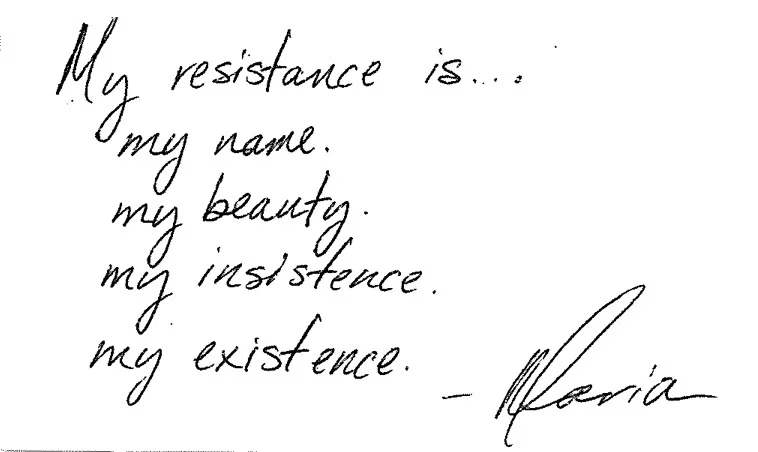 My resistance is...
my name.
my beauty.
my insistence.
my existence.
- Maria